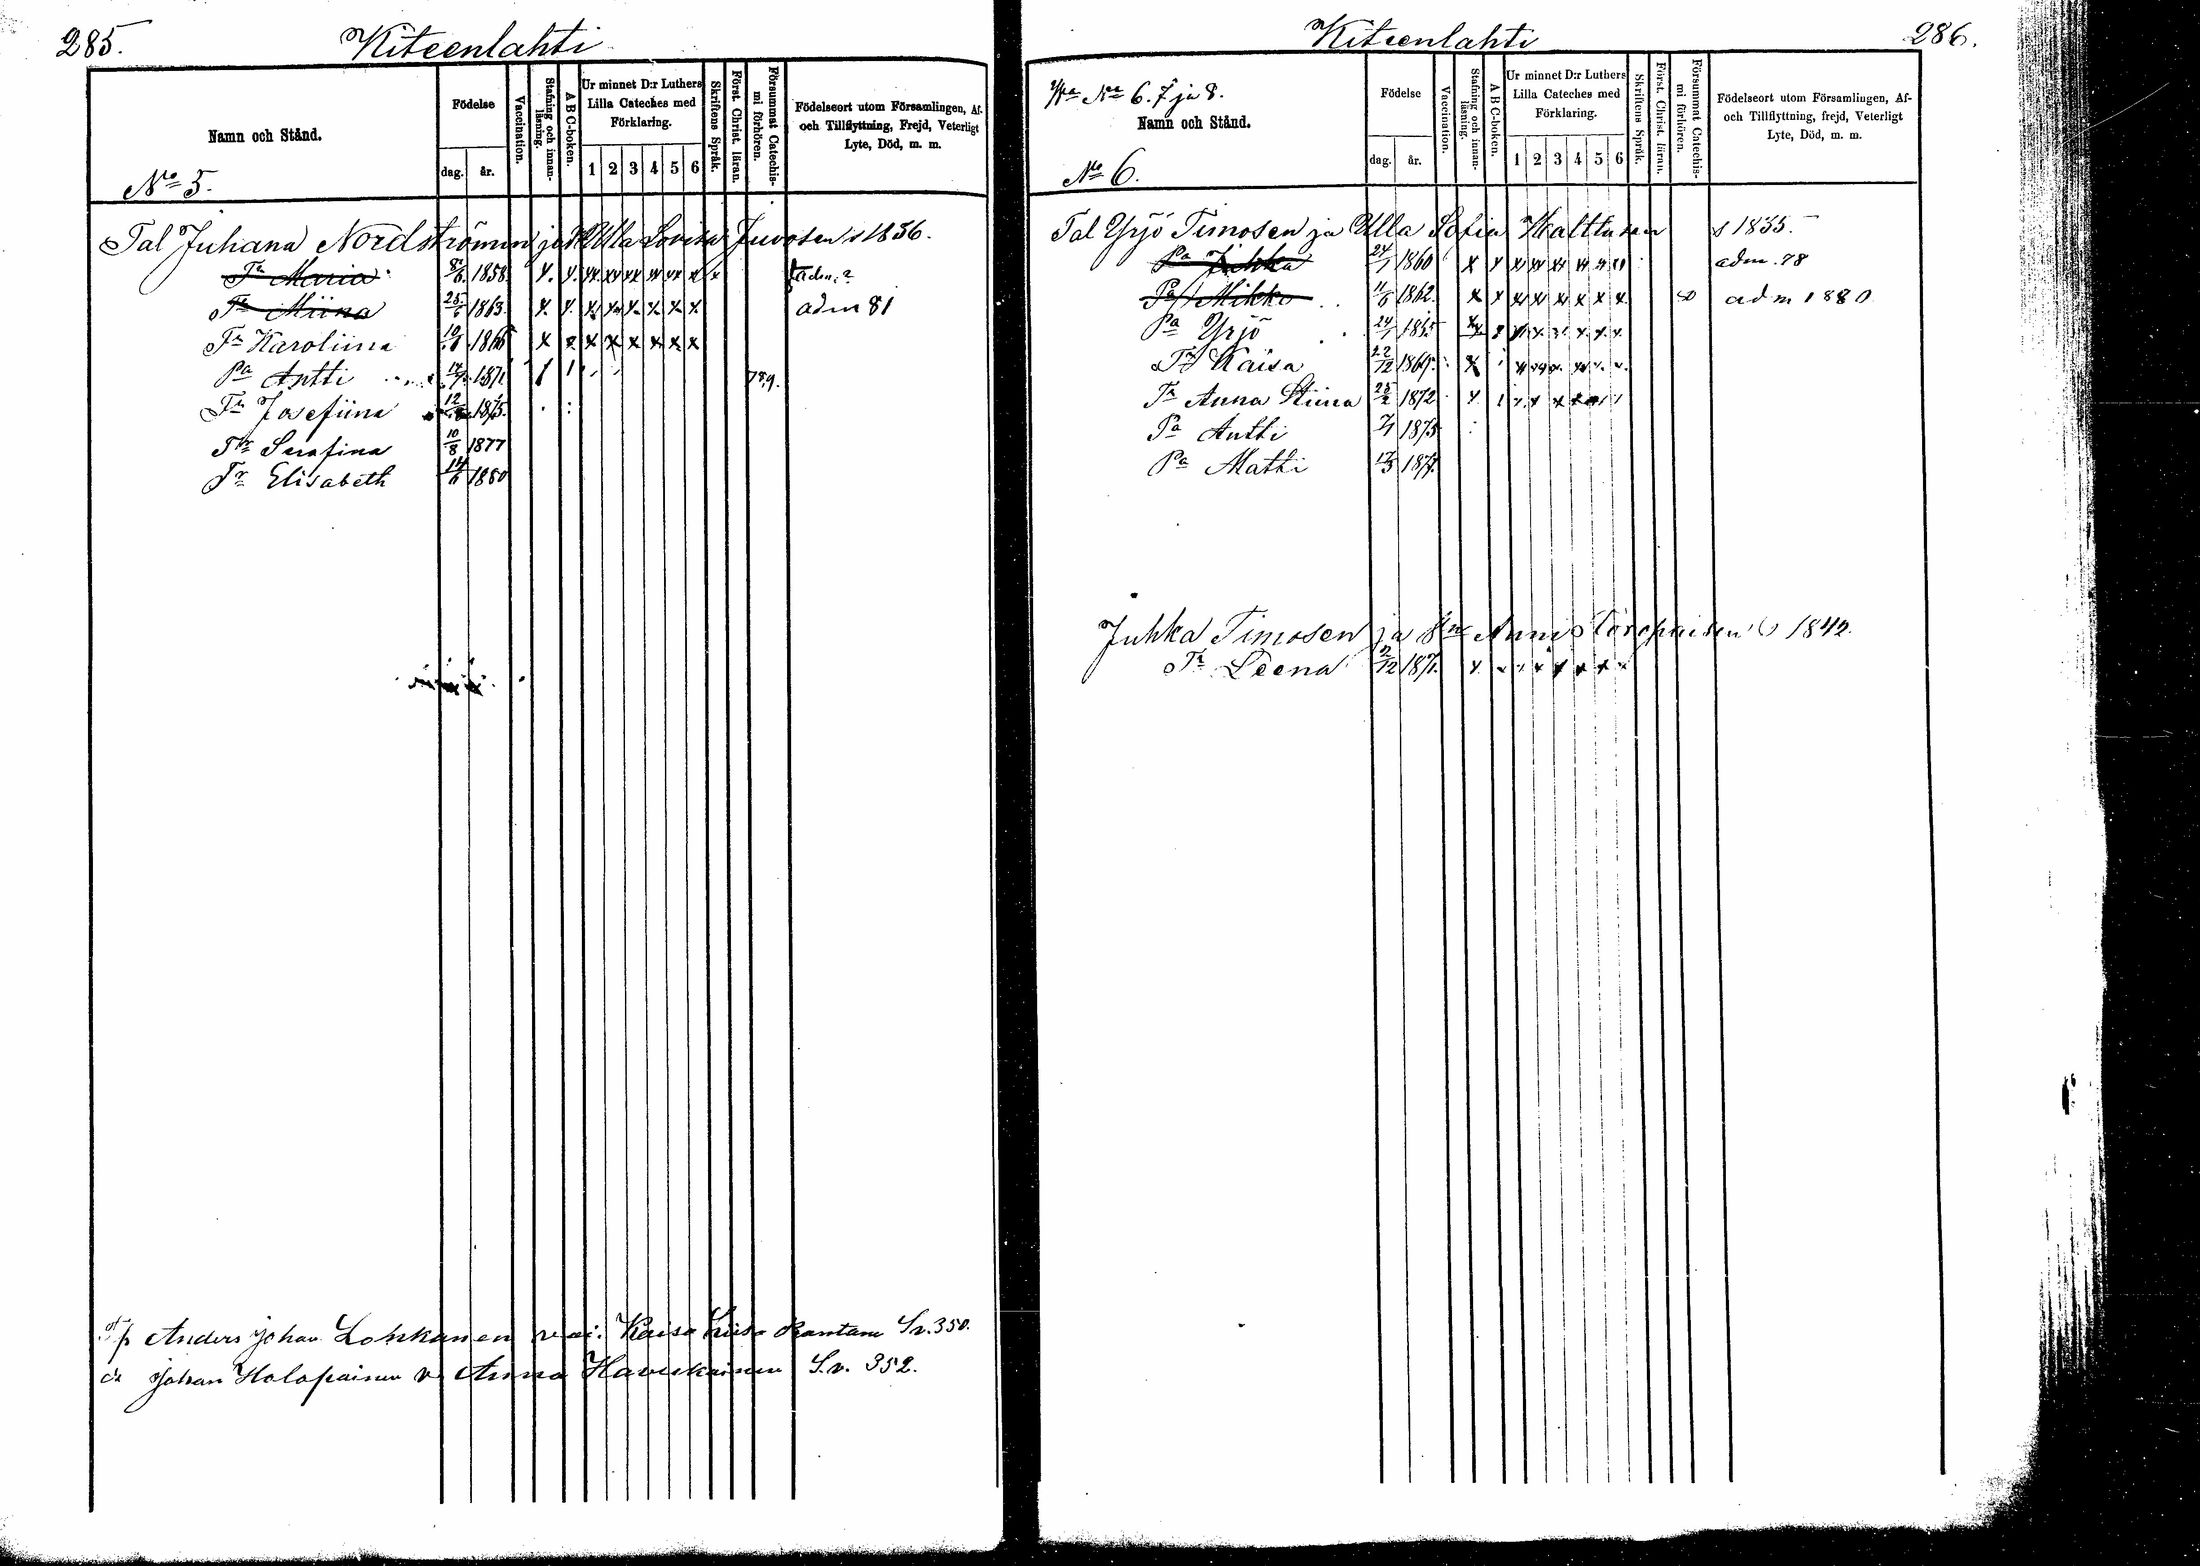 285.
Kiteenlahti
Namn och Stånd.
Födelse
dag. år.
Vaccination.
Stafning och innanläsning.
A B C-boken.
Ur minnet D:r Luthers Lilla Cateches med Förklaring.
1 2 3 4 5 6
Skriftens Språk.
Först. Christ. läran.
Försummat Catechismi förhören.
Födelseort utom Församlingen, Af- och Tillflyttning, Frejd, Veterligt Lyte, Död, m. m.
No 5.
Tal Juhana Nordströmin ja Ulla Lovisa Juvosen s 1836.
Tr Maria 1858. x. x. xx xx xx xx xx x x adm.
Tr Miina 25/5 1863. x. x. x x x x x x adm 81
Tr Karoliina 1866 x x x x x x x x
Pa Antti 1871 789.
Tr Josefiina 1875.
Tr Serafina 10/8 1877
Tr Elisabeth 1880
Anders Johan Lohkanen Kaisa S.v. 350.
Johan Holopainen v. Anna Havukainen S.v. 352.
286.
Kiteenlahti
No 6. 7 ja 8.
Namn och Stånd.
Födelse
dag. år.
Vaccination.
Stafning och innanläsning.
A B C-boken.
Ur minnet D:r Luthers Lilla Cateches med Förklaring.
1 2 3 4 5 6
Skriftens Språk.
Först. Christ. läran.
Försummat Catechismi förhören.
Födelseort utom Församlingen, Af- och Tillflyttning, frejd, Veterligt Lyte, Död, m. m.
No 6.
Tal Yrjö Timosen ja Ulla Sofia Malttusen s 1835.
Pa Juhka 24/1 1860 x x adm. 78
Pa Mikko 11/6 1862. x x x x x x x x 80 adm 1880
Pa Yrjö 24/1 1865
Tr Kaisa 22/12 1869.
Tr Anna Stiina 25/2 1872
Pa Antti 1875
Pa Matti 1877
Juhka Timosen ja Anni s 1842.
Tr Leena 1871. x